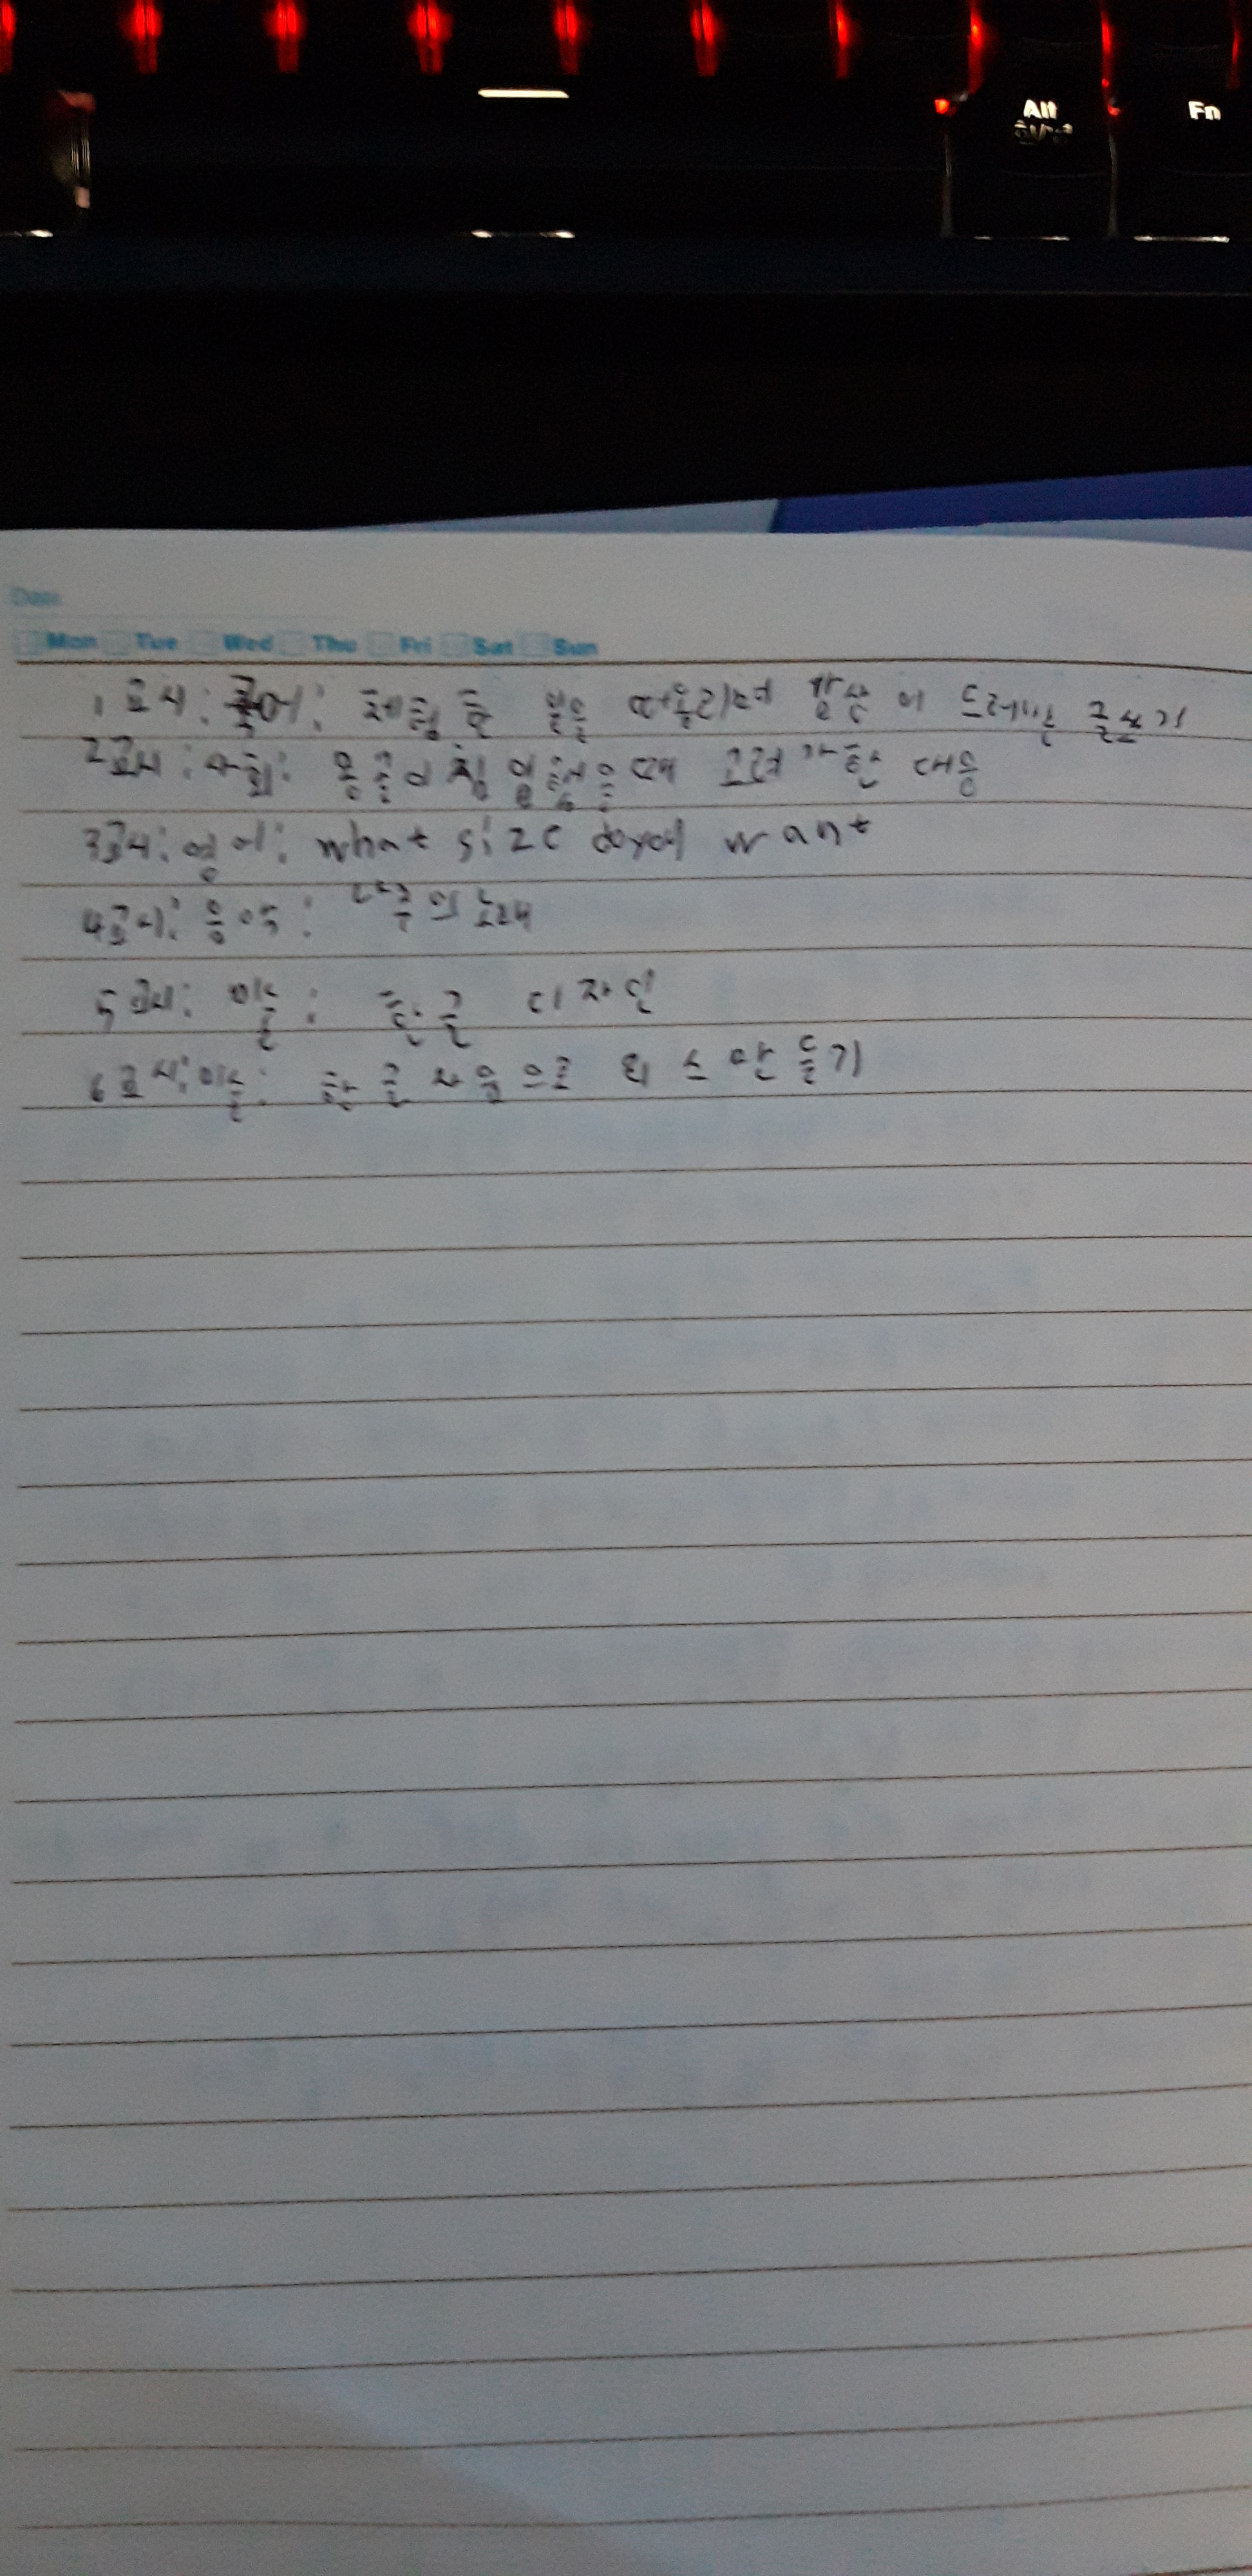 Alt
한/영
Fn
Date
Mon Tue Wed Thu Fri Sat Sun
1교시: 국어: 체험한 일을 떠올리며 감상이 드러나는 글쓰기
2교시: 사회: 몽골이 침입했을때 고려가한 대응
3교시: 영어: what size do you want
4교시: 음악: 의 노래
5교시: 미술: 한글 디자인
6교시: 미술: 한글 자음으로 만들기